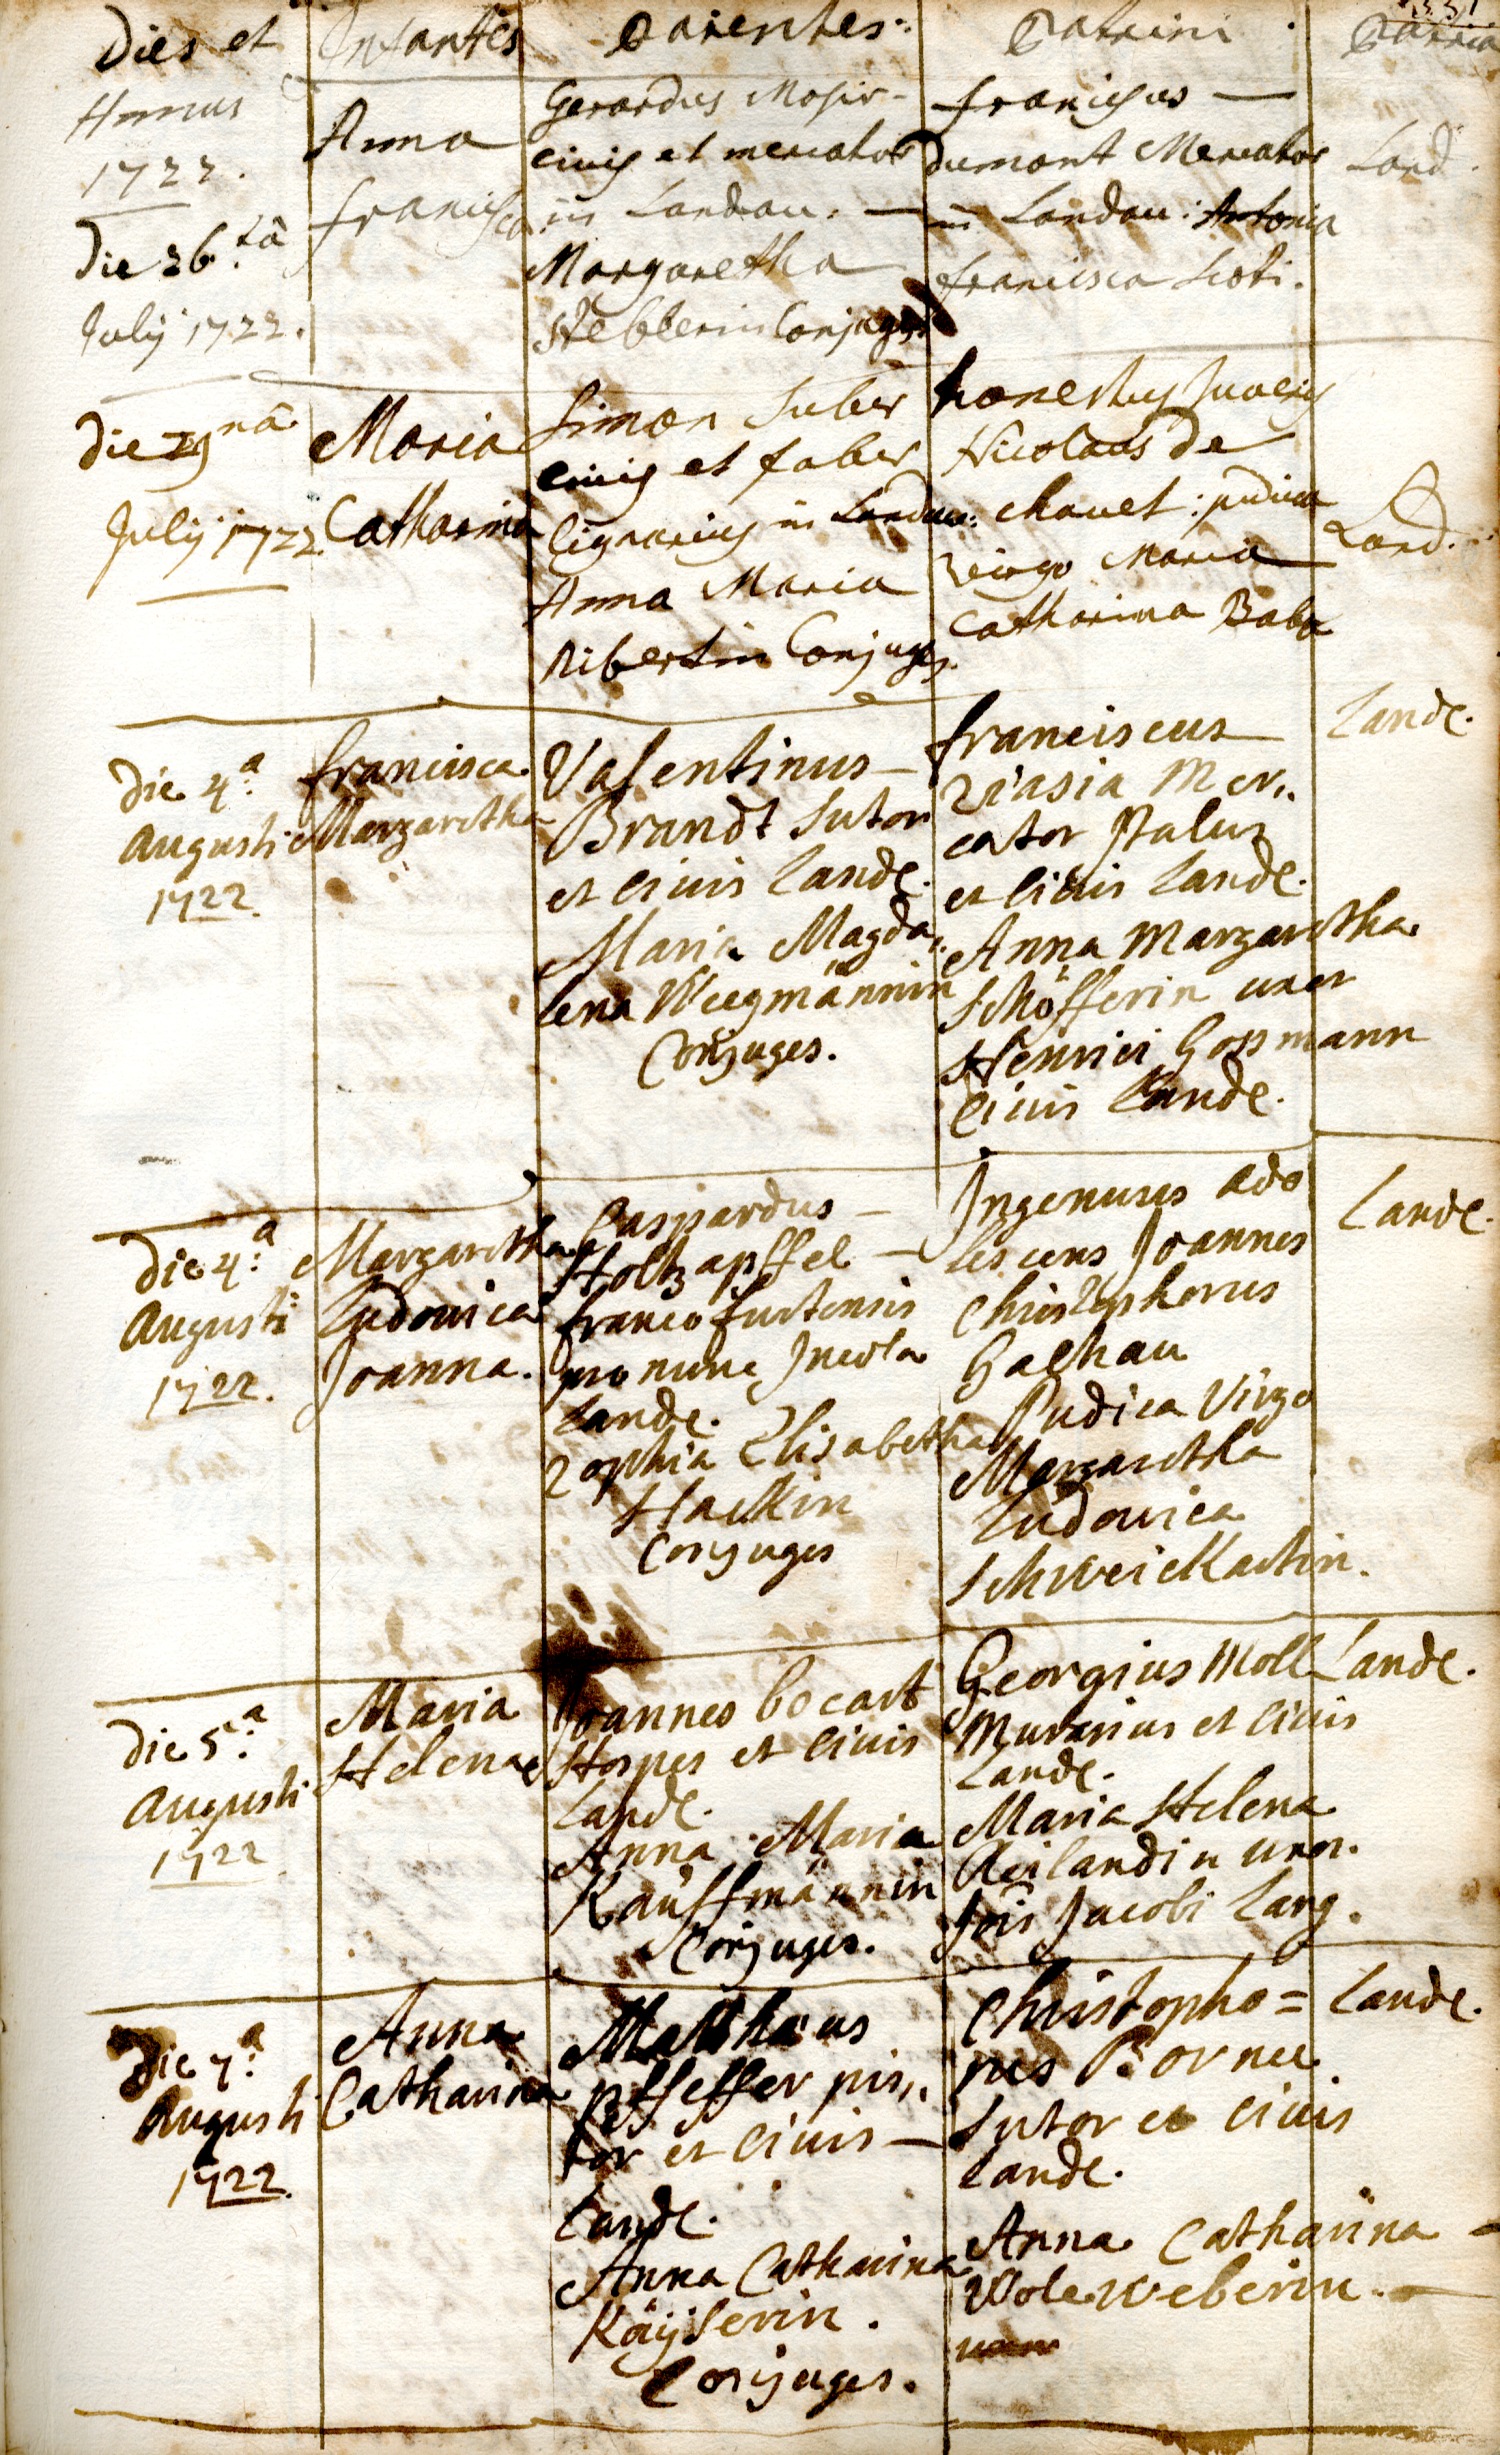 Dies et
Annus
1722.
Infantes
Parentes:
Patrini
Patria
Die 26.ta
July 1722.
Anna
Francisca
Gerardus
civis et mercator
in Landau. —
Margaretha
Steblerin Conjuges
Franciscus —
dumont Mercator
in Landau: Antonia
francisca Scoti.
Land.
Die 29na
July 1722.
Maria
Catharina
Simon Suber
civis et faber
lignarius in Landau:
Anna Maria
Ribertin Conjuges.
honestus Juvenis
Nicolaus de
chauet: pudica
virgo Maria
Catharina Baba
Land.
Die 4.a
Augusti
1722.
Francisca
Margaretha
Valentinus —
Brandt Sutor
et Civis Lande.
Maria Magda„
lena Weegmännin
Conjuges.
Franciscus
Viasia Mer„
cator Italus
et Civis Lande.
Anna Margaretha
Schöfferin uxor
Henrici Gossmann
Civis Lande.
Lande.
Die 4.a
Augusti
1722.
Margaretha
Ludovica
Joanna.
Caspardus —
Holtzapffel —
francofurtensis
pro nunc Incola
Lande.
Sophia Elisabetha
Hackin
Conjuges
Ingenuus ado
lescens Joannes
Christophorus
Gachau
Pudica Virgo
Margaretha
Ludovica
Schweickartin.
Lande.
Die 5.a
Augusti
1722
Maria
Helena
Joannes bocart
Hospes et Civis
Lande.
Anna Maria
Kauffmännin
Conjuges.
Georgius Moll
Murarius et Civis
Lande.
Maria Helena
Reilandin uxor.
Jois Jacobi Lang.
Lande.
Die 7.a
Augusti
1722.
Anna
Catharina
Matthaeus
Pfeffer pis„
tor et Civis —
Lande.
Anna Catharina
Käyserin.
Conjuges.
Christopho=
rus Bornee
Sutor et Civis
Lande.
Anna Catharina —
Wolleweberin. —
Lande.